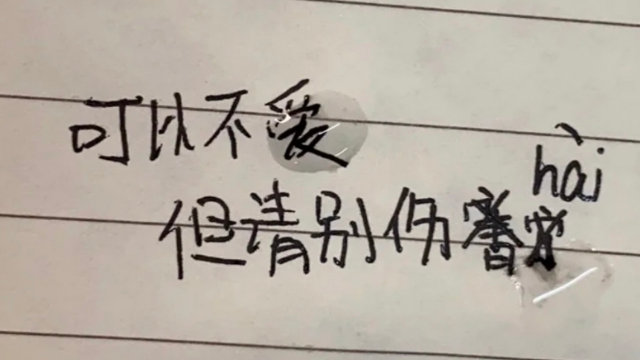 可以不爱
但请别伤hài